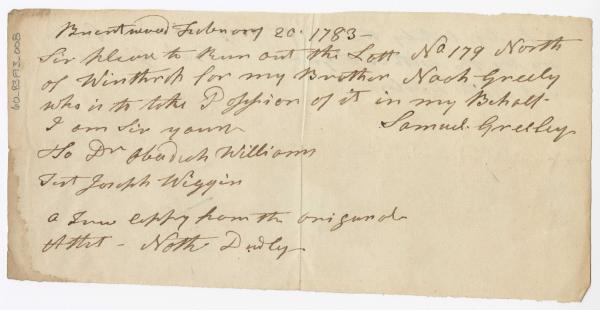 Brentwood February 20. 1783-
Sir please to Run out the Lott No 179 North
of Winthrop for my Brother Noah Greely
who is to take Possion of it in my Behalf-
I am Sir yours
Samuel Greeley
To Dr Obadiah Williams
Test Joseph Wiggin
a True coppy from the original
Attest - Nath Dudly
60-R3F13_008